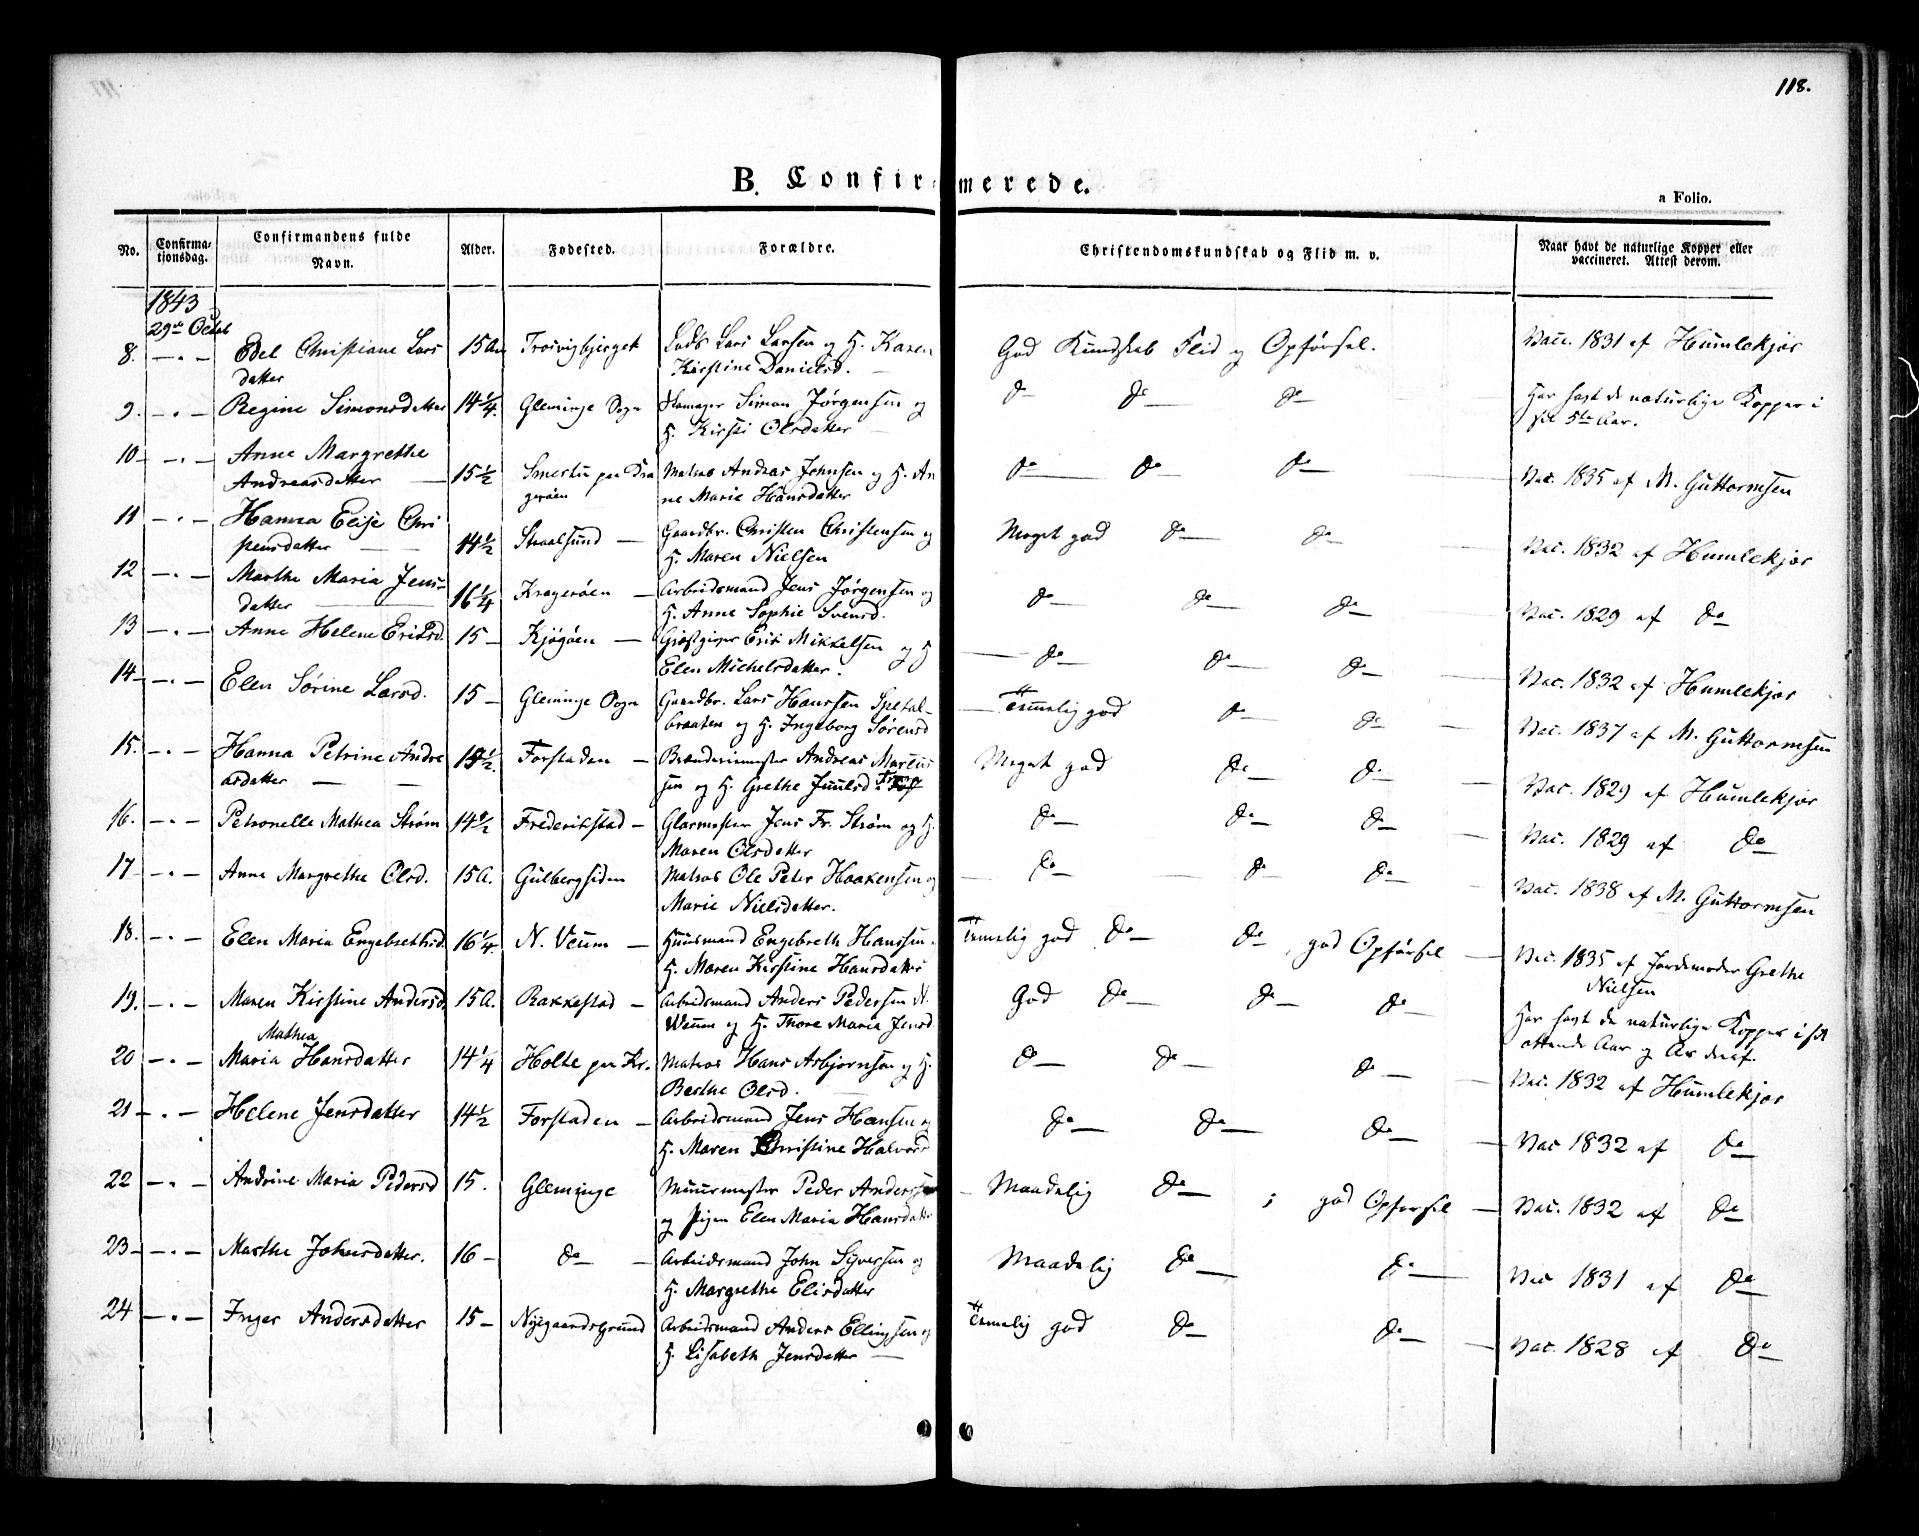 118.
B. Confirmerede.
a Folio.
No. Confirma-tionsdag. Confirmandens fulde Navn. Alder. Fødested. Forældre. Christendomskundskab og Flid m. v. Naar havt de naturlige Kopper eller vaccineret. Attest derom.
1843
29de Octob
8. — " — Edel Christiane Lars 15 Aar Lods Lars Larsen og H. Karen God Kundskab Flid og Opførsel. Vacc. 1831 af Humlekjær
datter Kirstine Danielsd.
9. — " — Regine Simonsdatter 14 1/4. Gleminge Sogn Simon Jørgensen og do do do Har havt de naturlige Kopper i
H. Kirsti Olsdatter sit 5te Aar.
10 — " — Anne Margrethe
Andreasdatter 15 1/2 paa Kra Matros Andreas Johnsen og H. An do do do Vac. 1835 af M. Guttormsen
gerøen ne Marie Hansdatter
11 — " — Hanna Elise Chri
stensdatter 14 1/2 Straalsund — Gaardbr. Christen Christensen og Meget god do do Vac. 1832 af Humlekjær
H. Maren Nielsen
12 — " — Marthe Maria Jens-
datter 16 1/4 Kragerøen — Arbeidsmand Jens Jørgensen og do do do Vac. 1829 af do
H. Anne Sophie Svensd.
13 — " — Anne Helene Eriksd. 15 — Kjøgøen — Erik Mikkelsen og H do do do Vac. 1832 af Humlekjær
Elen Michelsdatter.
14 — " — Elen Sørine Larsd. 15 — Gleminge Sogn Gaardbr. Lars Hanssen Spetal- Temmelig god do do Vac. 1837 af M. Guttormsen
braaten og H. Ingeborg Sørensd
15. — " — Hanna Petrine Andre 1/2. Forstaden — Andreas Marcus Meget god do do Vac. 1829 af Humlekjær
asdatter — sen og H. Grethe Juulsd
16. — " — Petronelle Mathea Strøm 14 1/2 Frederikstad — Glarmester Jens Fr. Strøm og H. do do do Vac. 1829 af do
Maren Olsdatter
17 — " — Anne Margrethe Olsd. 15 A. Gulbergsiden Matros Ole Peter Haakensen og do do do Vac. 1838 af M. Guttormsen
Marie Nielsdatter.
18. — " — Elen Maria Engebrethsd. 16 1/4. N. Veum — Huusmand Engebreth Hanssen. Temmelig god do do, god Opførsel Vac. 1835 af Jordemoder Grethe
H. Maren Kirstine Hansdatter Nielsen
19. — " — Maren Kirstine Andersd. 15 A. Rakkestad — Arbeidsmand Anders Pedersen N. God do do do Har havt de naturlige Kopper i sit
Mathea Weum og H. Thore Maria Jensd ottende Aar og Ar deraf.
20 — " — Maria Hansdatter 14 1/4 Holte paa Kr. Matros Hans Asbjørnsen og H. do do do Vac. 1832 af Humlekjær
Berthe Olsd.
21 — " — Helene Jensdatter 14 1/2 Forstaden — Arbeidsmand Jens Hansen og do do do Vac 1832 af do
H. Maren Christine Halvors
22 — " — Andrine Maria Pedersd 15. Gleminge Muurmester Peder Anderssen Maadelig do ; god Opførsel — Vac. 1832 af do
og Pigen Elen Maria Hansdatter
23 — " — Marthe Johnsdatter. 16 — do — Arbeidsmand John Syversen og Maadelig do do Vac 1831 af do
H. Margrethe Elisdatter
24 — " — Inger Andersdatter 15 — Nygaardsgrund Arbeidsmand Anders Ellingsen og Temmelig god do do Vac. 1828 af do
H. Lisabeth Jensdatter —